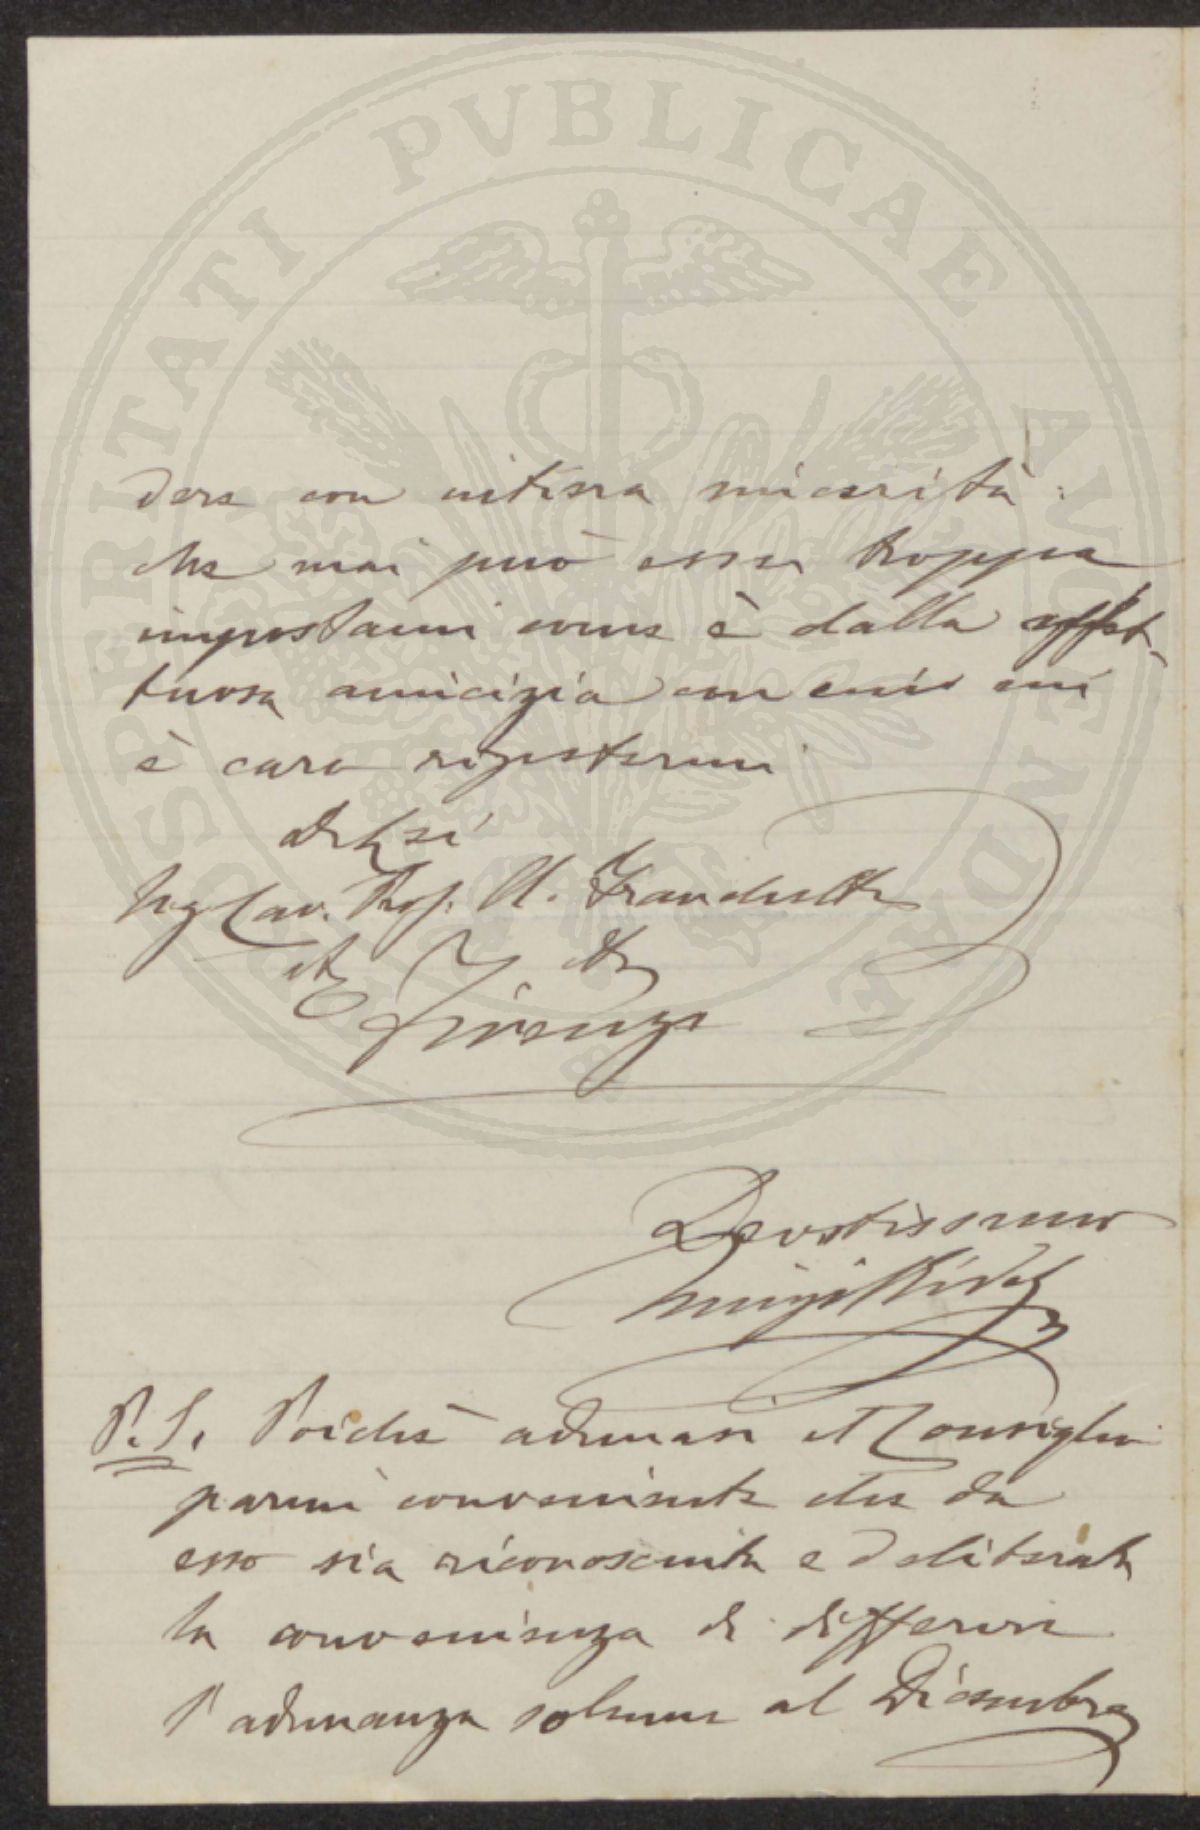 PROSPERITATI PVBLICAE AVGENDAE
dere con intera sincerità:
che mai può esser troppa
impostami come è dalla affet-
tuosa amicizia con cui mi
è caro ripetermi
Cav. Prof. A. Franchetti
Firenze
Devotissimo
Luigi Ridolfi
P.S. Poichè adunasi il Consiglio
parmi conveniente che da
esso sia riconosciuta e deliberata
la convenienza di differire
l'adunanza solenne al Dicembre